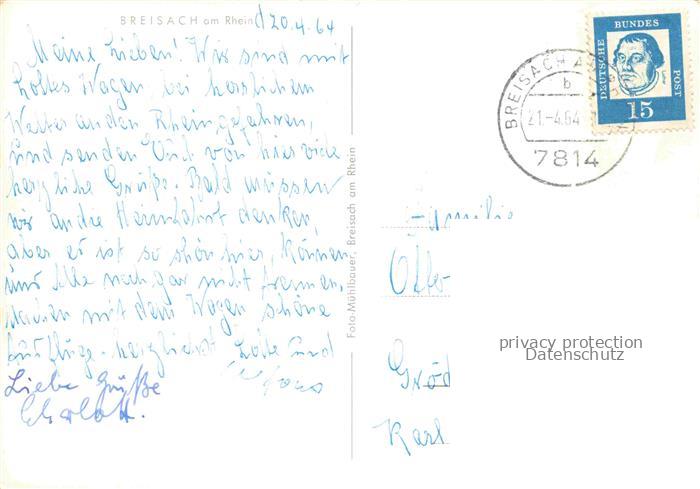 BREISACH am Rhein
d 20.4.64
Meine Lieben! Wir sind mit
Lottes Wagen, bei herrlichem
Wetter an den Rhein gefahren,
und senden Euch von hier viele
herzliche Grüße. Bald müssen
wir an die Heimfahrt denken,
aber es ist so schön hier, können
uns alle noch gar nicht trennen,
machen mit dem Wagen schöne
Ausflüge. herzlichst Lotte und
Liebe Grüße
Foto-Mühlbauer, Breisach am Rhein
BREISACH
b
21.-4.64
7814
DEUTSCHE
BUNDES
POST
15
Familie
Otto
privacy protection
Datenschutz
Karl